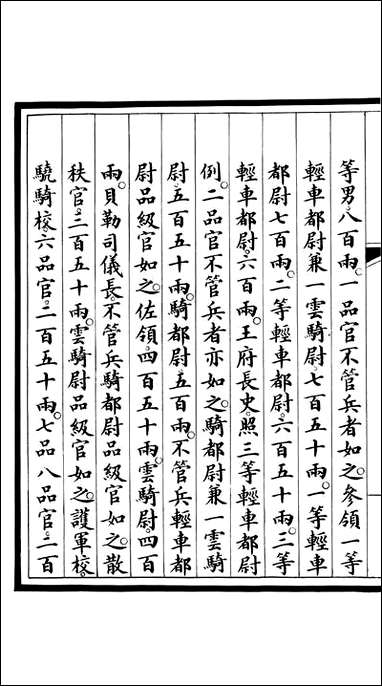 等男。八百兩。一品官不管兵者如之。參領一等
輕車都尉兼一雲騎尉。七百五十兩。一等輕車
都尉七百兩。二等輕車都尉。六百五十兩。三等
輕車都尉。六百兩。王府長史。照三等輕車都尉
例。二品官不管兵者亦如之。騎都尉兼一雲騎
尉。五百五十兩。騎都尉五百兩。不管兵輕車都
尉品級官如之。佐領。四百五十兩。雲騎尉。四百
兩。貝勒司儀長。不管兵騎都尉品級官如之。散
秩官。三百五十兩。雲騎尉品級官如之。護軍校。
驍騎校。六品官。二百五十兩。七品八品官。二百